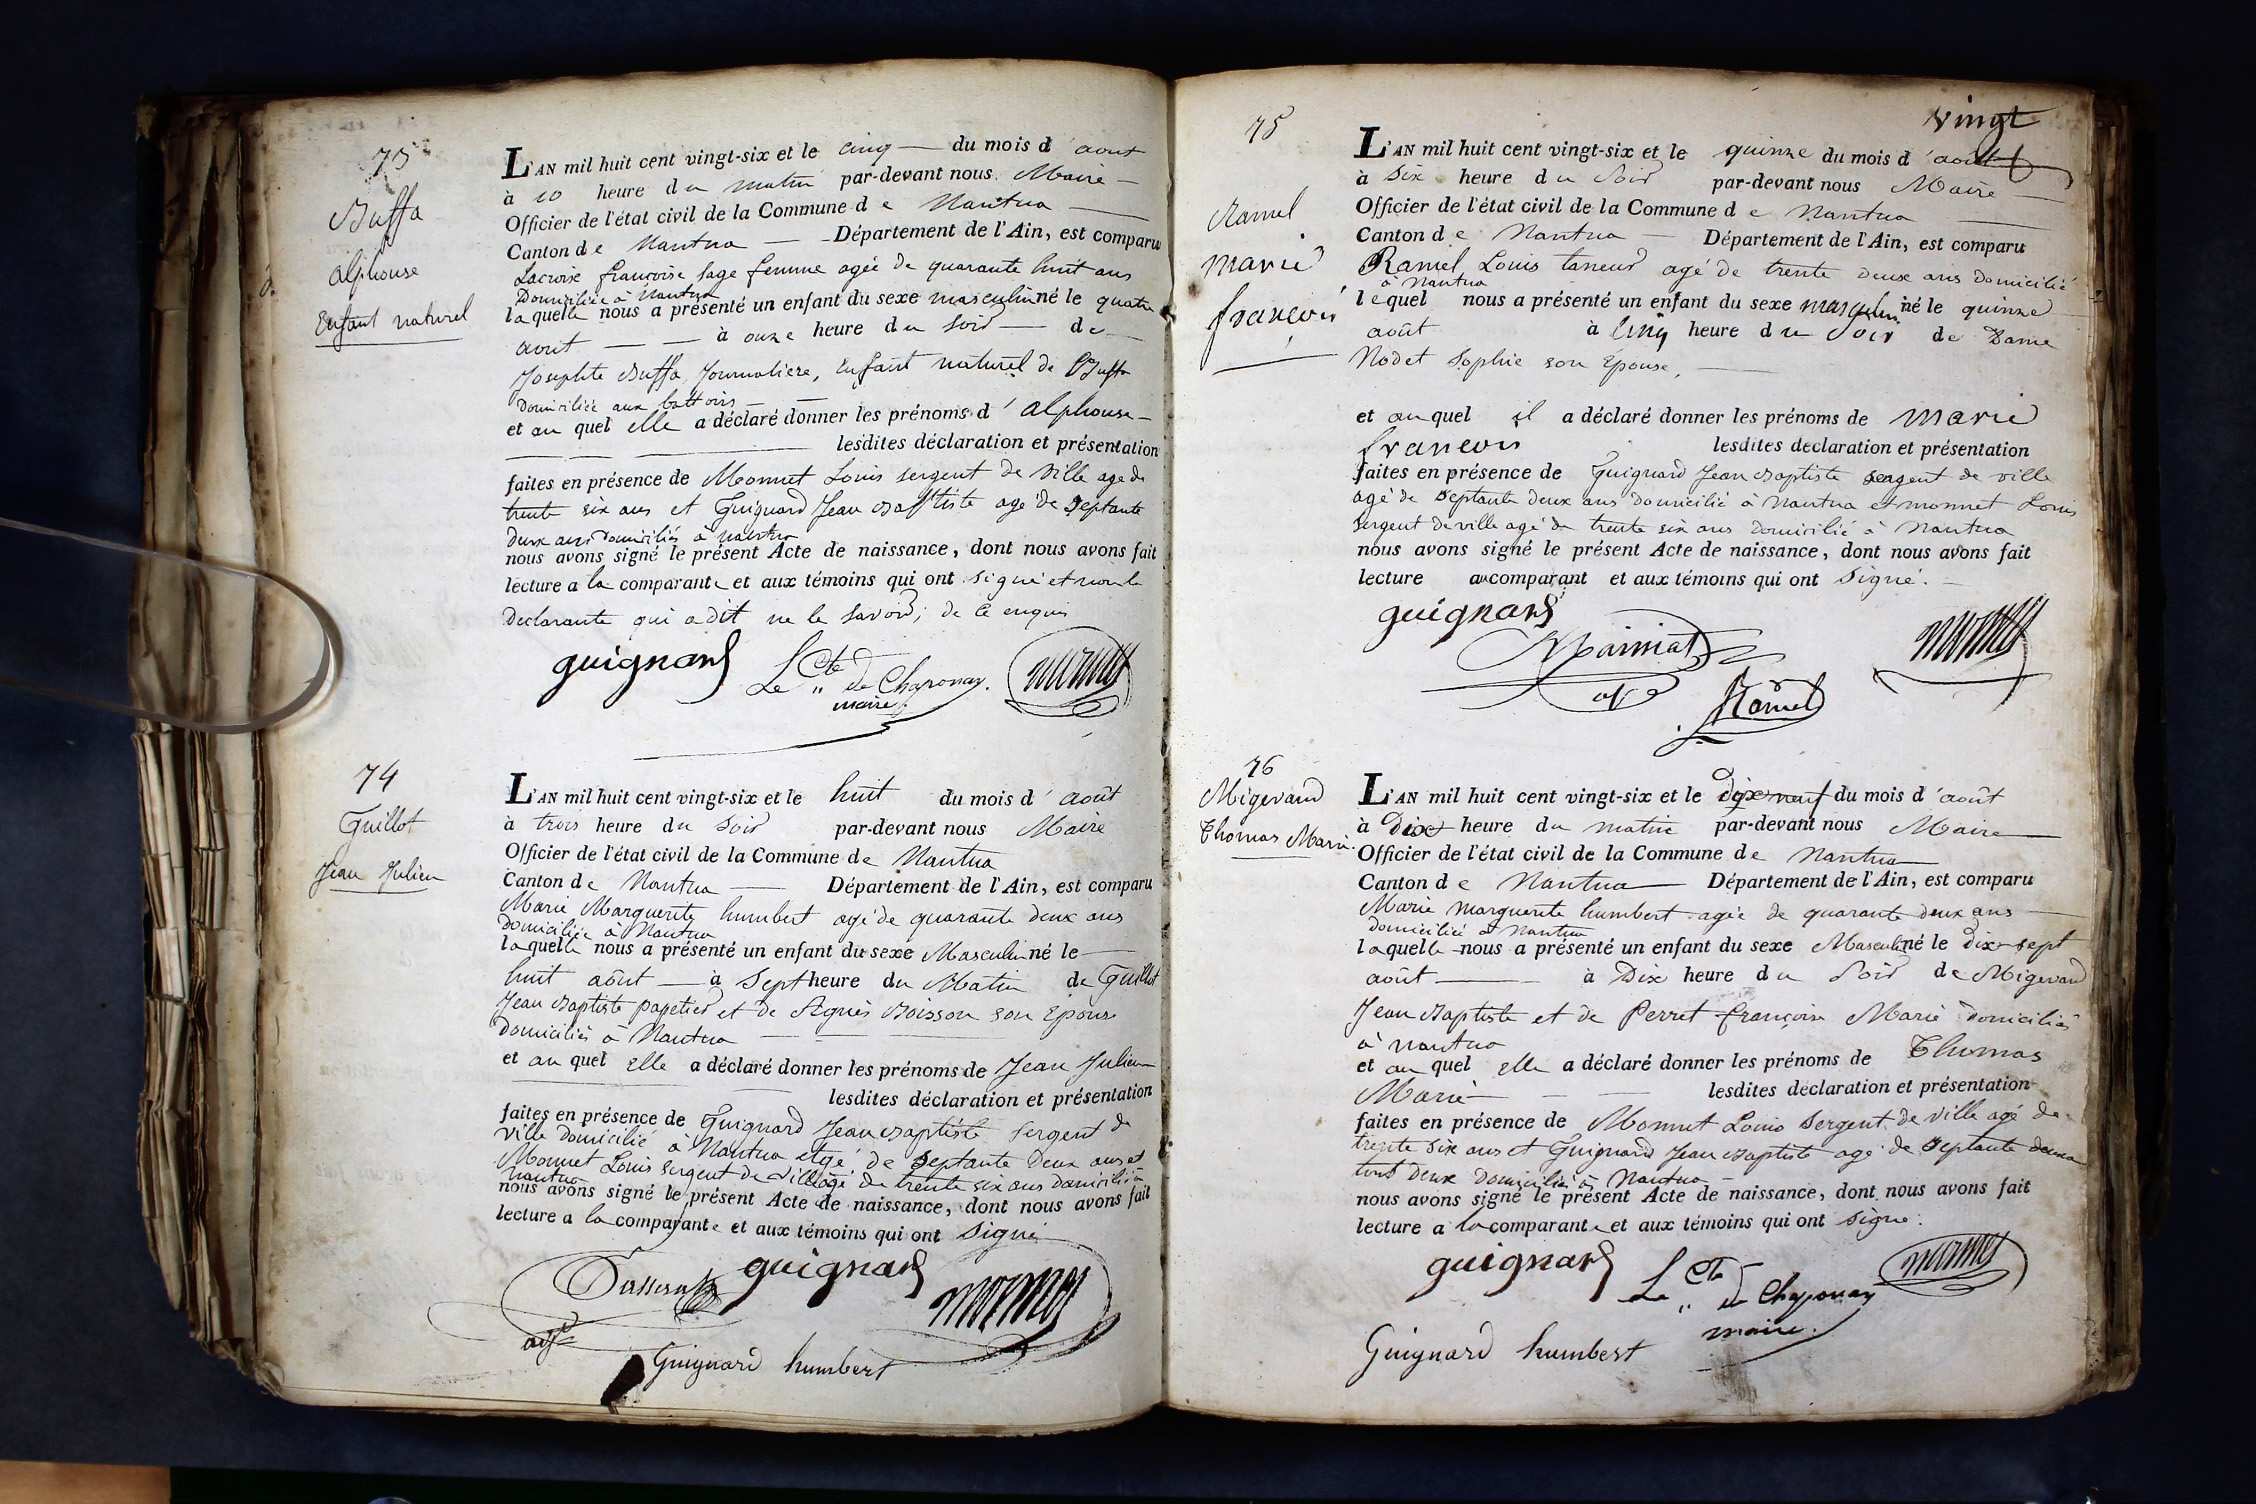 73
Buffa
Alphonse
Enfant naturel
L'AN mil huit cent vingt-six et le cinq du mois d'aout
à 10 heure du matin par-devant nous Maire
Officier de l'état civil de la Commune de Nantua
Canton de Nantua Département de l'Ain, est comparu
Lacroix françoise sage femme agée de quarante huit ans
Domiciliée à Nantua
laquelle nous a présenté un enfant du sexe masculin né le quatre
aout à onze heure du soir de
Josephte Buffa Journaliere, Enfant naturel de Buffa
Domiciliée aux battoirs
et au quel elle a déclaré donner les prénoms d'Alphonse
lesdites déclaration et présentation
faites en présence de Monnet Louis sergent de ville age de
trente six ans et Guignard Jean Baptiste age de septante
deux ans Domiciliés à nantua
nous avons signé le présent Acte de naissance, dont nous avons fait
lecture a la comparante et aux témoins qui ont signé et non la
declarante qui a dit ne le savoir, de ce enquis
guignard Le Cte de Chaponay. monnet
maire
74
Guillot
Jean Julien
L'AN mil huit cent vingt-six et le huit du mois d'août
à trois heure du soir par-devant nous Maire
Officier de l'état civil de la Commune de Nantua
Canton de Nantua Département de l'Ain, est comparu
Marie Marguerite humbert agé de quarante deux ans
Domiciliée à Nantua
laquelle nous a présenté un enfant du sexe Masculin né le
huit aôut à sept heure du Matin de Guillot
Jean Baptiste papetier et de Agnès Boisson son Epouse
Domiciliés à Nantua
et au quel elle a déclaré donner les prénoms de Jean Julien
lesdites déclaration et présentation
faites en présence de Guignard Jean Baptiste sergent de
ville domicilié à Nantua et gé de septante Deux ans et
Monnet Louis sergent de ville agé de trente six ans domicilié à
nantua
nous avons signé le présent Acte de naissance, dont nous avons fait
lecture a la comparante et aux témoins qui ont signé
guignard monnet
adjt
Guignard humbert
vingt
75
Ramel
marie
françois
L'AN mil huit cent vingt-six et le quinze du mois d'août
à six heure du soir par-devant nous Maire
Officier de l'état civil de la Commune de Nantua
Canton de Nantua Département de l'Ain, est comparu
Ramel Louis taneur agé de trente deux ans domicilié
à Nantua
lequel nous a présenté un enfant du sexe masculin né le quinze
août à cinq heure du soir de Dame
Nodet Sophie son Epouse,
et au quel il a déclaré donner les prénoms de marie
francois lesdites declaration et présentation
faites en présence de Guignard Jean Baptiste sergent de ville
agé de septante deux ans domicilié à nantua et monnet Louis
sergent de ville agé de trente six ans domicilié à Nantua
nous avons signé le présent Acte de naissance, dont nous avons fait
lecture au comparant et aux témoins qui ont signé.
guignard
monnet
Ramel
76
Migerand
Thomas Marie
L'AN mil huit cent vingt-six et le dix neuf du mois d'août
à Dix heure du matin par-devant nous Maire
Officier de l'état civil de la Commune de Nantua
Canton de Nantua Département de l'Ain, est comparu
Marie marguerite humbert agée de quarante deux ans
domicilié à Nantua
laquelle nous a présenté un enfant du sexe Masculin né le Dix sept
août à Dix heure du soir de Migerand
Jean Baptiste et de Perret françoise Marie domiciliés
à nantua
et au quel elle a déclaré donner les prénoms de Thomas
Marie lesdites declaration et présentation
faites en présence de Monnet Louis sergent de ville agé de
trente six ans et Guignard Jean Baptiste agé de septante deux
tous deux domiciliés à Nantua
nous avons signé le présent Acte de naissance, dont nous avons fait
lecture a la comparante et aux témoins qui ont signé.
guignard Le Cte de Chaponay monnet
maire.
Guignard humbert